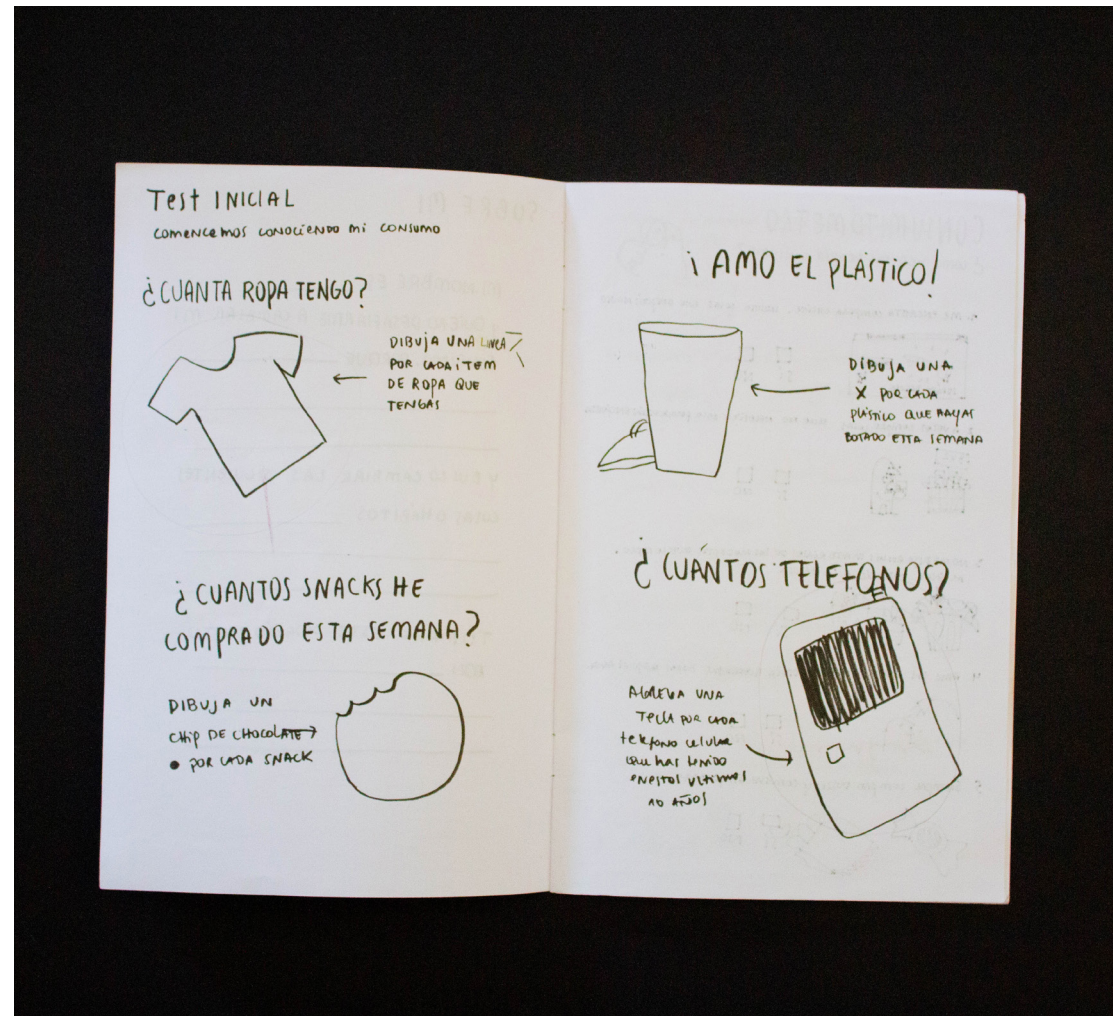 Test INICIAL
comencemos conociendo mi consumo
¿CUANTA ROPA TENGO?
DIBUJA UNA LINEA
POR CADA ITEM
DE ROPA QUE
TENGAS
¿CUANTOS SNACKS HE
COMPRADO ESTA SEMANA?
DIBUJA UN
CHIP DE CHOCOLATE
● POR CADA SNACK
¡AMO EL PLÁSTICO!
DIBUJA UNA
X POR CADA
plástico QUE HAYAS
BOTADO ESTA SEMANA
¿CUÁNTOS TELEFONOS?
AGREGA UNA
TECLA POR CADA
telefono celular
que has tenido
en estos ultimos
10 AÑOS